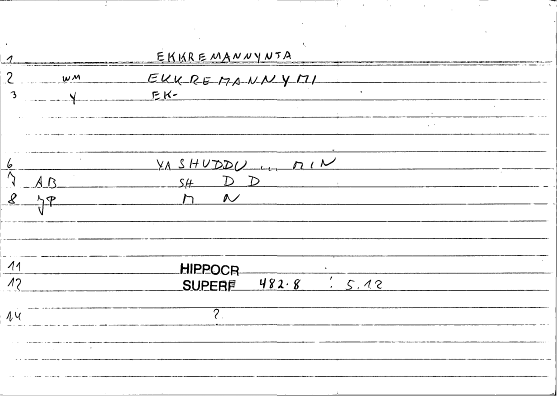 1 EKKREMANNYNTA
2 WM EKKREMANNYMI
3 Y EK-
6 YASHUDDU ... MIN
7 AB SH D D
8 M N
11 HIPPOCR
12 SUPERF 482.8 : 5.12
14 ?